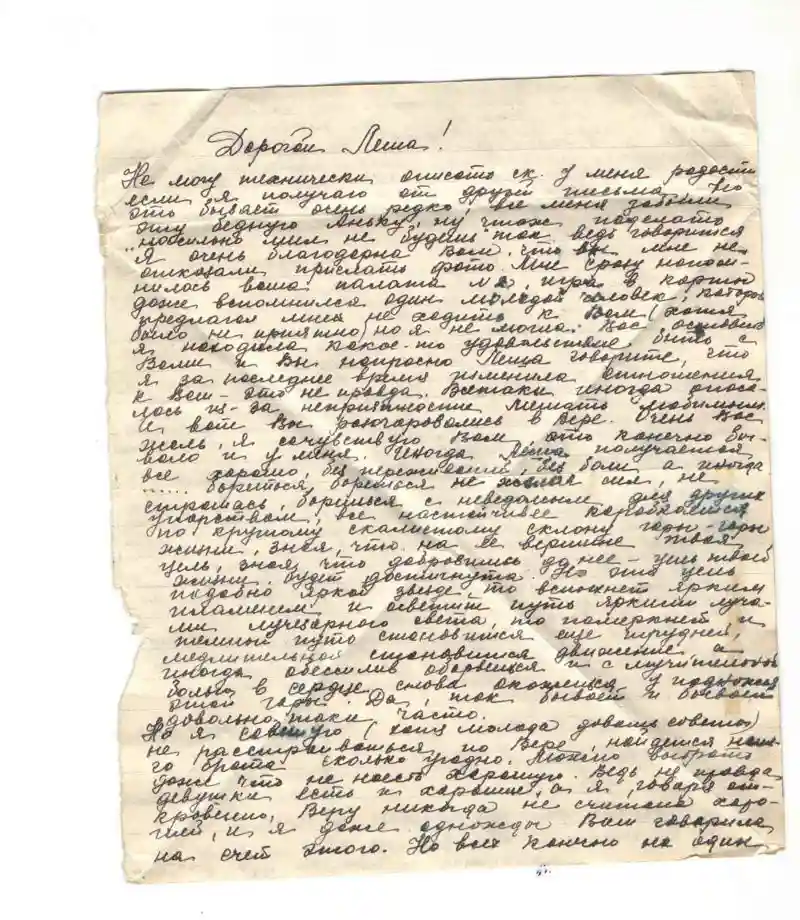 Дорогой Леша!
Не могу технически описать ск. у меня радости
если я получаю от друзей письма. Но
это бывает очень редко, все меня забыли
эту бедную Аньку, ну чтож поделать
"насильно мил не будешь" так ведь говорится
Я очень благодарна Вам, что вы мне не
отказали прислать фото. Мне сразу напом-
нилась ваша палата №, игра в карты
даже вспомнился один молодой человек, который
предлагал мне не ходить к Вам (хотя
было не приятно) но я не могла. Вас,
я находила какое-то удовольствие быть с
Вами и Вы напрасно Леша говорите, что
я за последнее время изменила отношения
к Вам - это не правда. Всетаки иногда опаса-
лась из-за неприятностей мешать любимым.
И вот Вы разочаровались в Вере. Очень Вас
жаль, я сочувствую Вам, это конечно бы-
вало и у меня. Иногда Леша получается
все хорошо, без переживаний, без боли а иногда
...... бороться, бороться не жалея сил, не
страшась, борешься с неведомым для других
упорством, все настойчивее карабкаешься
по крутому скалистому склону горы - горы
жизни, зная, что на ее вершине твоя
цель, зная, что добравшись до нее - цель твоей
жизни будет достигнута. Но эта цель
подобно яркой звезде, то вспыхнет ярким
пламенем и осветит путь яркими луча-
ми лучезарного света, то померкнет, и
темный путь становится еще трудней,
медлительней становится движение а
иногда обессилив оборвешься и с мучительной
болью в сердце снова окажешься у подножья
этой горы. Да, так бывает и бывает
довольно таки часто.
Но я советую (хотя молода давать советы)
не расстраиваться по Вере, найдется
го брата сколько угодно. Можно выбрать
даже что не наесть хорошую. Ведь не правда
девушки есть и хорошие, а я говоря от-
кровенно, Веру никогда не считала хоро-
шей, и я даже однажды Вам говорила
на счет этого. Но всех конечно на один